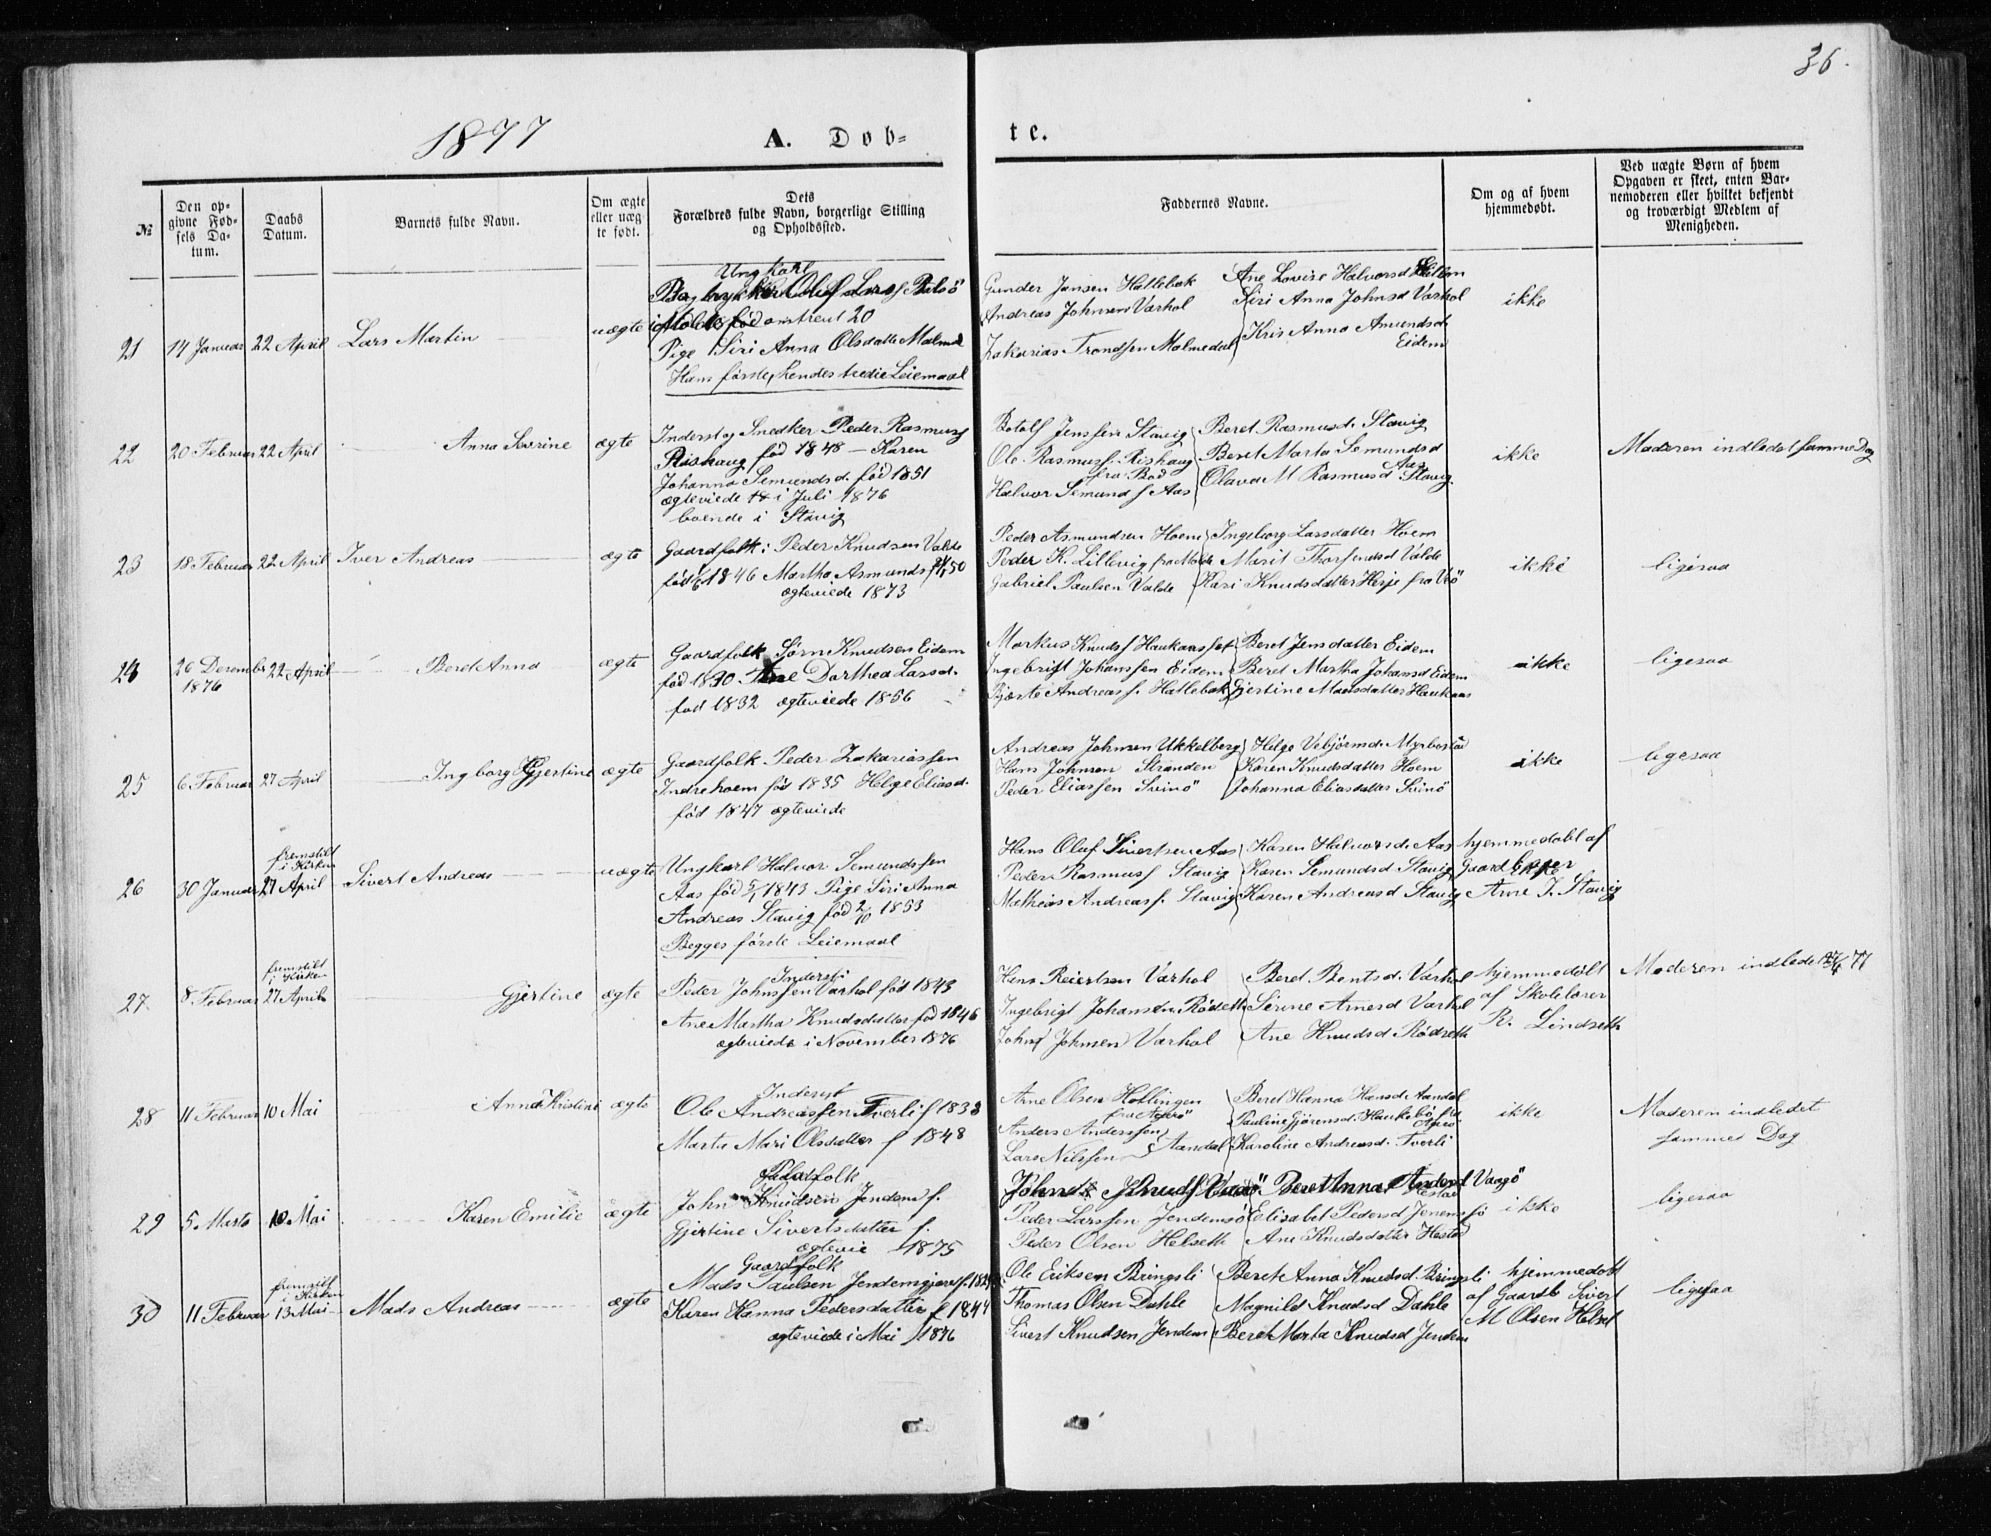 36.
1877
A. Døb=
te.
№
Den op-
givne Fød-
sels Da-
tum.
Daabs
Datum.
Barnets fulde Navn.
Om ægte
eller uæg-
te født.
Dets
Forældres fulde Navn, borgerlige Stilling
og Opholdssted.
Faddernes Navne.
Om og af hvem
hjemmedøbt.
Ved uægte Børn af hvem
Opgaven er skeet, enten Bar-
nemoderen eller hvilket bekjendt
og troværdigt Medlem af
Menigheden.
21 14 Januar 22 April Lars Martin uægte
Ungkarl
Olaf
i Molde født omtrent 20
Pige Siri Anna Olsdatter
Hans første, hendes tredie Leiemaal
Gunder Jansen Hatlebak
Andreas Johnsen Varhol
Zakarias Trondsen Malmedal
Ane Lovise Halvorsd Eidem
Siri Anna Johnsd Varhol
Kris Anna Amundsd
Eidem
ikke
22 20 Februar 22 April Anna Severine ægte
Inderst og Snedker Peder Rasmuss
Rishaug fød 1848 - Karen
Johanna Semundsd. fød 1851
ægteviede i Juli 1876
boende i Stavig
Botolf Jenssen Stavig
Ole Rasmuss. Rishaug
fra Bod
Halvor Semunds Aas
Beret Rasmusd. Stavig
Beret Marta Semundsd
Aas
Olava M Rasmusd Stavig
ikke
Moderen indledet samme Dag
23 18 Februar 22 April Iver Andreas ægte
Gaardfolk: Peder Knudsen Valde
fød 1846 Martha Asmunds 50
ægteviede 1873
Peder Asmundsen Hoem
Peder K. Lillevig fra Molde
Gabriel Paulsen Valde
Ingeborg Larsdatter Hoem
Marit Valde
Kari Knudsdatter Herje fra Veø
ikke
ligesaa
24 26 December
1876
22 April Beret Anna ægte
Gaardfolk Sørn Knudsen Eidem
fød 1830 Ane Dorthea Larsd.
fød 1832 ægteviede 1856
Markus Knuds Haukaas
Ingebrigt Johanssen Eidem
Andreas s. Hatlebak
Beret Jensdatter Eidem
Beret Martha Johansd Eidem
Gjertine Madsdatter Haukaas
ikke
ligesaa
25 6 Februar 27 April Ingborg Gjertine ægte
Gaardfolk Peder Zakariassen
Indrehoem fød 1835 Helge Eliasd.
fød 1847 ægteviede
Andreas Johnsen Ukkelberg
Hans Johnsen Stranden
Peder Eliassen Svinø
Helge Vebjørnsd. Myrbostad
Karen Knudsdatter Hoem
Johanna Eliasdatter Svinø
ikke
ligesaa
26 30 Januar
fremstilt
i Kirken
27 April Sivert Andreas uægte
Ungkarl Halvor Semundssen
Aas fød 5/1 1843 Pige Siri Anna
Andreas Stavig fød 2/10 1853
Begges første Leiemaal
Hans Olaf Sivertsen Aas
Peder Rasmuss Stavig
Mathias Andreass. Stavig
Karen Halvorsd. Aas
Karen Semundsd Stavig
Karen Andreasd Stavig
hjemmedøbt af
Arne I. Stavig
27 8 Februar
fremstilt
i Kirken
27 April Gjertine ægte
Peder Johnssen Varhol fød 1843
Ane Martha Knudsdatter fød 1846
ægteviede i November 1876
Hans Reiertsen Varhol
Ingebrigt Johansen Rødseth
John Johnsen Varhol
Beret Bentsd. Varhol
Sørine Arnesd Varhol
Ane Knudsd Rødseth
hjemmedøbt
af Skolelærer
R. Lindseth
Moderen indledet 77
28 11 Februar 10 Mai Anna Kristine ægte
Inderst
Ole Andreassen Tverli f 1838
Marta Mari Olsdatter f 1848
Arne Olsen Hollingen
fra Agerø
Anders Anderssen
Lars Nilssen Aandal
Beret Hanna Hansd Aandal
Pauline Gjørensd. Haukebø fra
Agerø
Karoline Andreasd. Tverli
ikke
Moderen indledet
samme Dag
29 5. Marts 10 Mai Karen Emilie ægte
Pladsfolk
John Knudsen Jendem f.
Gjertine Sivertsdatter f.
ægtevie 1875
Peder Larssen Jendemsø
Peder Olsen Helseth
Beret Anna Andersd Vaagø
Elisabet Pedersd Jenemsø
Ane Knudsdatter Hestad
ikke
ligesaa
30 11 Februar
fremstilt
i Kirken
13 Mai Mads Andreas ægte
Gaardfolk
Mads Paulsen Jendemgjære
Karen Hanna Pedersdatter f 1844
ægteviede i Mai 1876
Ole Eriksen Bringsli
Thomas Olsen Dahle
Sivert Knudsen Jendem
Beret Anna Knudsd Bringsli
Magnild Knudsd Dahle
Beret Marta Knudsd Jendem
hjemmedøbt
af Gaardb Sivert
M Olsen Helset
ligesaa